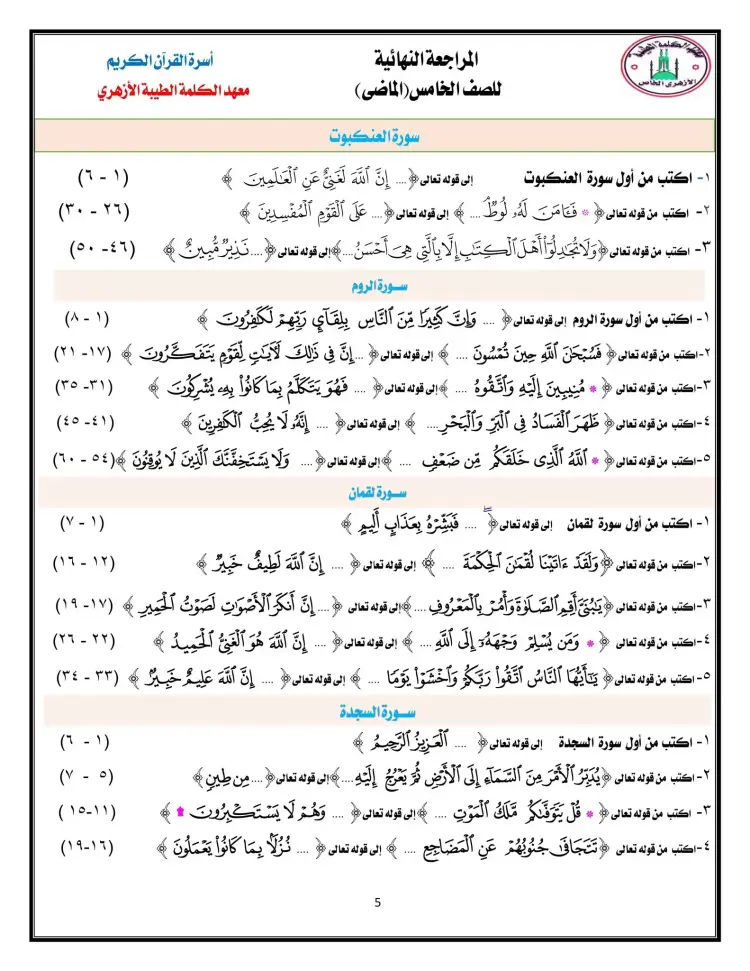 المراجعة النهائية
للصف الخامس(الماضى)
أسرة القرآن الكريم
معهد الكلمة الطيبة الأزهري
سورة العنكبوت
١- اكتب من أول سورة العنكبوت إلى قوله تعالى﴿ .... إِنَّ ٱللَّهَ لَغَنِىٌّ عَنِ ٱلْعَٰلَمِينَ ﴾ (١ - ٦)
٢- اكتب من قوله تعالى﴿ * فَـَٔامَنَ لَهُۥ لُوطٌ .... ﴾ إلى قوله تعالى﴿ .... عَلَى ٱلْقَوْمِ ٱلْمُفْسِدِينَ ﴾ (٢٦ - ٣٠)
٣- اكتب من قوله تعالى﴿وَلَا تُجَٰدِلُوٓا۟ أَهْلَ ٱلْكِتَٰبِ إِلَّا بِٱلَّتِى هِىَ أَحْسَنُ....﴾إلى قوله تعالى﴿ ....نَذِيرٌ مُّبِينٌ ﴾ (٤٦- ٥٠)
سورة الروم
١- اكتب من أول سورة الروم إلى قوله تعالى﴿ .... وَإِنَّ كَثِيرًا مِّنَ ٱلنَّاسِ بِلِقَآئِ رَبِّهِمْ لَكَٰفِرُونَ ﴾ (١ - ٨)
٢-اكتب من قوله تعالى﴿ فَسُبْحَٰنَ ٱللَّهِ حِينَ تُمْسُونَ .... ﴾ إلى قوله تعالى﴿ ...إِنَّ فِى ذَٰلِكَ لَـَٔايَٰتٍ لِّقَوْمٍ يَتَفَكَّرُونَ ﴾ (١٧- ٢١)
٣-اكتب من قوله تعالى﴿ * مُنِيبِينَ إِلَيْهِ وَٱتَّقُوهُ .... ﴾إلى قوله تعالى﴿ .... فَهُوَ يَتَكَلَّمُ بِمَا كَانُوا۟ بِهِۦ يُشْرِكُونَ ﴾ (٣١- ٣٥)
٤-اكتب من قوله تعالى﴿ ظَهَرَ ٱلْفَسَادُ فِى ٱلْبَرِّ وَٱلْبَحْرِ.... ﴾ إلى قوله تعالى﴿ .... إِنَّهُۥ لَا يُحِبُّ ٱلْكَٰفِرِينَ ﴾ (٤١- ٤٥)
٥-اكتب من قوله تعالى﴿ * ٱللَّهُ ٱلَّذِى خَلَقَكُم مِّن ضَعْفٍ .... ﴾إلى قوله تعالى﴿ .... وَلَا يَسْتَخِفَّنَّكَ ٱلَّذِينَ لَا يُوقِنُونَ ﴾(٥٤ - ٦٠)
سورة لقمان
١- اكتب من أول سورة لقمان إلى قوله تعالى﴿ .... فَبَشِّرْهُ بِعَذَابٍ أَلِيمٍ ﴾ (١ - ٧)
٢-اكتب من قوله تعالى ﴿وَلَقَدْ ءَاتَيْنَا لُقْمَٰنَ ٱلْحِكْمَةَ .... ﴾ إلى قوله تعالى ﴿ .... إِنَّ ٱللَّهَ لَطِيفٌ خَبِيرٌ ﴾ (١٢ - ١٦)
٣-اكتب من قوله تعالى ﴿يَٰبُنَىَّ أَقِمِ ٱلصَّلَوٰةَ وَأْمُرْ بِٱلْمَعْرُوفِ....﴾إلى قوله تعالى﴿ ....إِنَّ أَنكَرَ ٱلْأَصْوَٰتِ لَصَوْتُ ٱلْحَمِيرِ ﴾ (١٧- ١٩)
٤-اكتب من قوله تعالى ﴿ * وَمَن يُسْلِمْ وَجْهَهُۥٓ إِلَى ٱللَّهِ .... ﴾ إلى قوله تعالى﴿ .... إِنَّ ٱللَّهَ هُوَ ٱلْغَنِىُّ ٱلْحَمِيدُ ﴾ (٢٢ - ٢٦)
٥-اكتب من قوله تعالى﴿ يَٰٓأَيُّهَا ٱلنَّاسُ ٱتَّقُوا۟ رَبَّكُمْ وَٱخْشَوْا۟ يَوْمًا .... ﴾ إلى قوله تعالى﴿ .... إِنَّ ٱللَّهَ عَلِيمٌ خَبِيرٌ ﴾ (٣٣ - ٣٤)
سورة السجدة
١- اكتب من أول سورة السجدة إلى قوله تعالى﴿ .... ٱلْعَزِيزُ ٱلرَّحِيمُ ﴾ (١ - ٦)
٢-اكتب من قوله تعالى ﴿يُدَبِّرُ ٱلْأَمْرَ مِنَ ٱلسَّمَآءِ إِلَى ٱلْأَرْضِ ثُمَّ يَعْرُجُ إِلَيْهِ....﴾إلى قوله تعالى﴿....مِن طِينٍ﴾ (٥ - ٧)
٣- اكتب من قوله تعالى﴿ * قُلْ يَتَوَفَّىٰكُم مَّلَكُ ٱلْمَوْتِ .... ﴾إلى قوله تعالى﴿ .... وَهُمْ لَا يَسْتَكْبِرُونَ ۩ ﴾ (١١-١٥)
٤-اكتب من قوله تعالى ﴿تَتَجَافَىٰ جُنُوبُهُمْ عَنِ ٱلْمَضَاجِعِ .... ﴾ إلى قوله تعالى﴿ .... نُزُلًۢا بِمَا كَانُوا۟ يَعْمَلُونَ ﴾ (١٦-١٩)
5